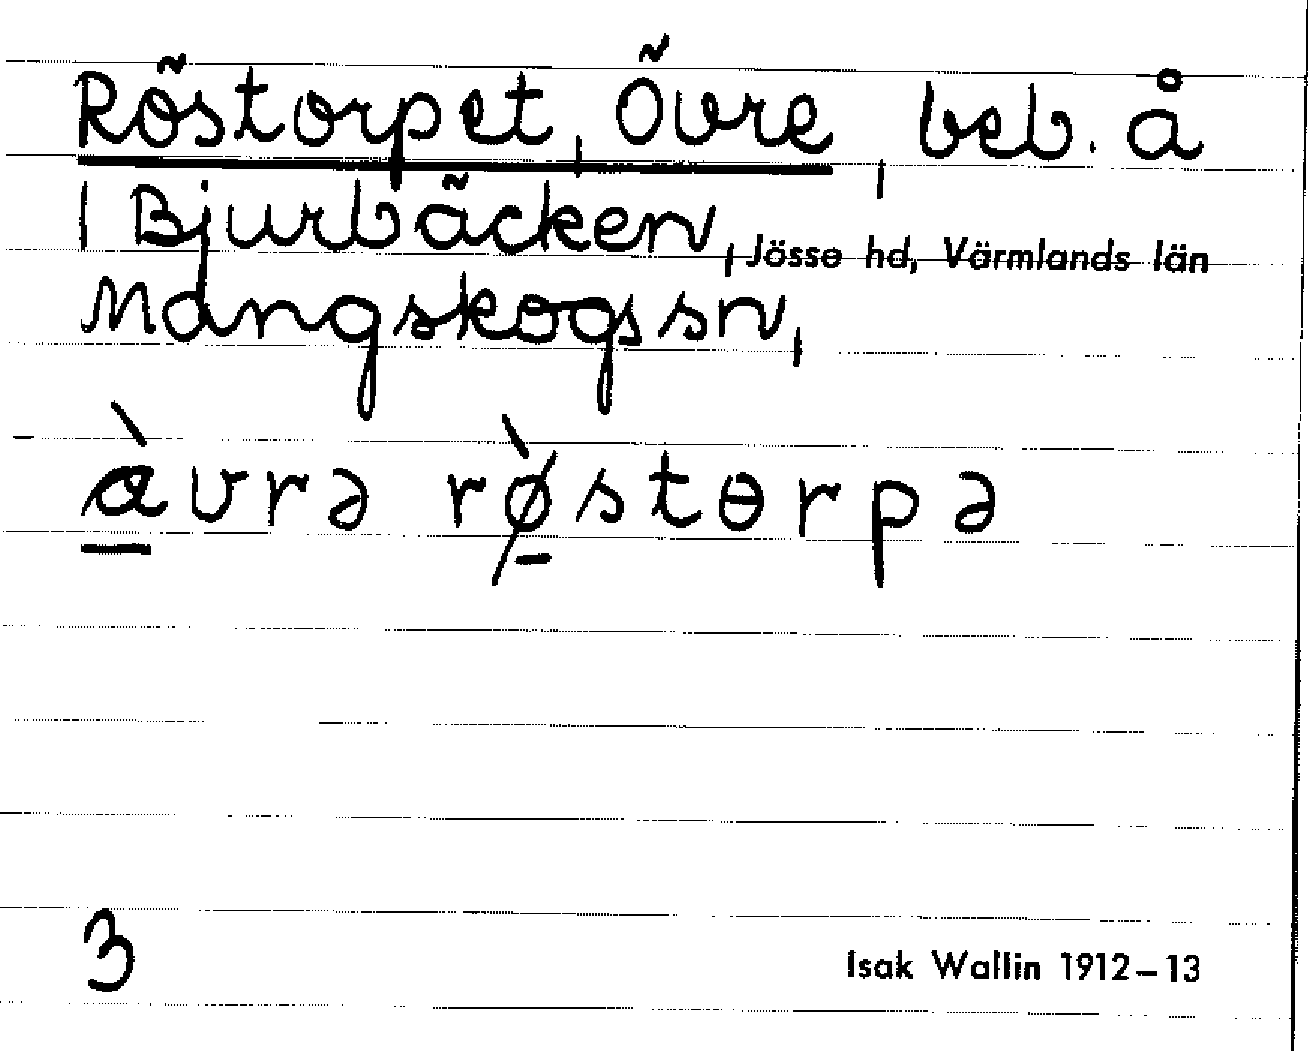 Röstorpet, Övre, beb. å
1 Bjurbäcken, Jösse hd, Värmlands län
Mangskogs sn,
àvrə rø̀stɵrpə
3
Isak Wallin 1912–13